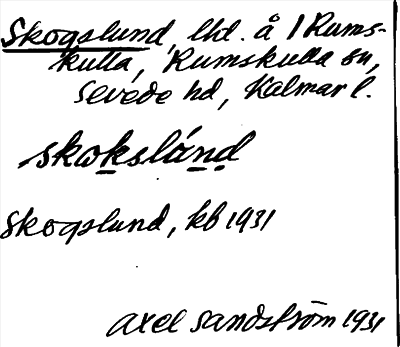 Skogslund, lht. å 1 Rums-
kulla, Rumskulla sn,
Sevede hd, Kalmar l.
skωkslánd
Skogslund, kb 1931
Axel Sandström 1931